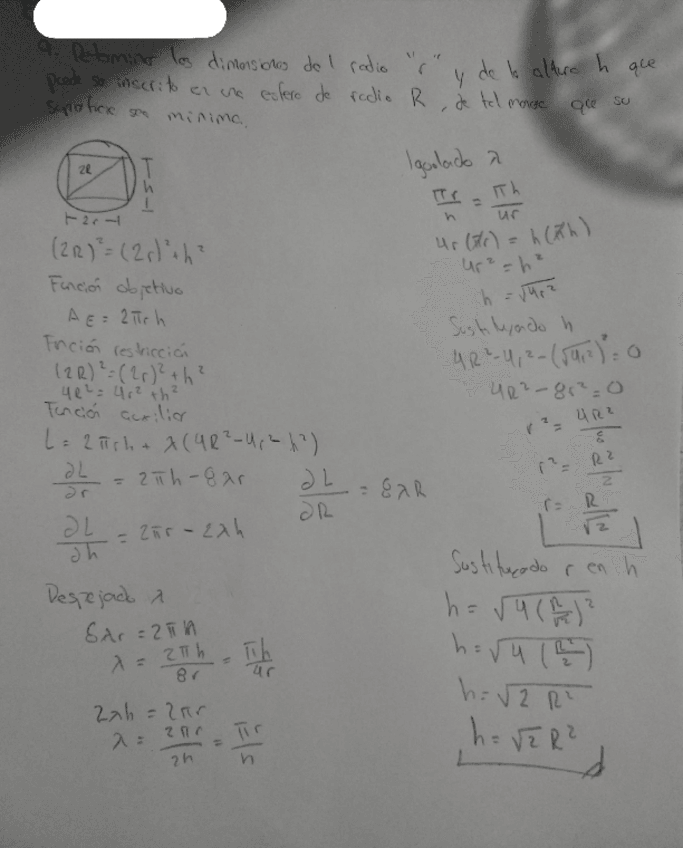 9. Determinar las dimensiones del radio "r" y de la altura h que
puede ser inscrito en una esfera de radio R, de tal manera que su
superficie sea minima.
2R
h
2r
(2R)² = (2r)² + h²
Función objetivo
A E = 2πrh
Función restricción
(2R)² = (2r)² + h²
4R² = 4r² + h²
Función auxiliar
L = 2πrh + λ(4R² - 4r² - h²)
∂L/∂r = 2πh - 8λr
∂L/∂R = 8λR
∂L/∂h = 2πr - 2λh
Despejado λ
8λr = 2πh
λ = 2πh/8r = πh/4r
2λh = 2πr
λ = 2πr/2h = πr/h
Igualado λ
πr/h = πh/4r
4r(πr) = h(πh)
4r² = h²
h = √4r²
Sustituyado h
4R² - 4r² - (√4r²)² = 0
4R² - 8r² = 0
r² = 4R²/8
r² = R²/2
r = R/√2
Sustituyado r en h
h = √4(R/√2)²
h = √4(R²/2)
h = √2 R²
h = √2 R²